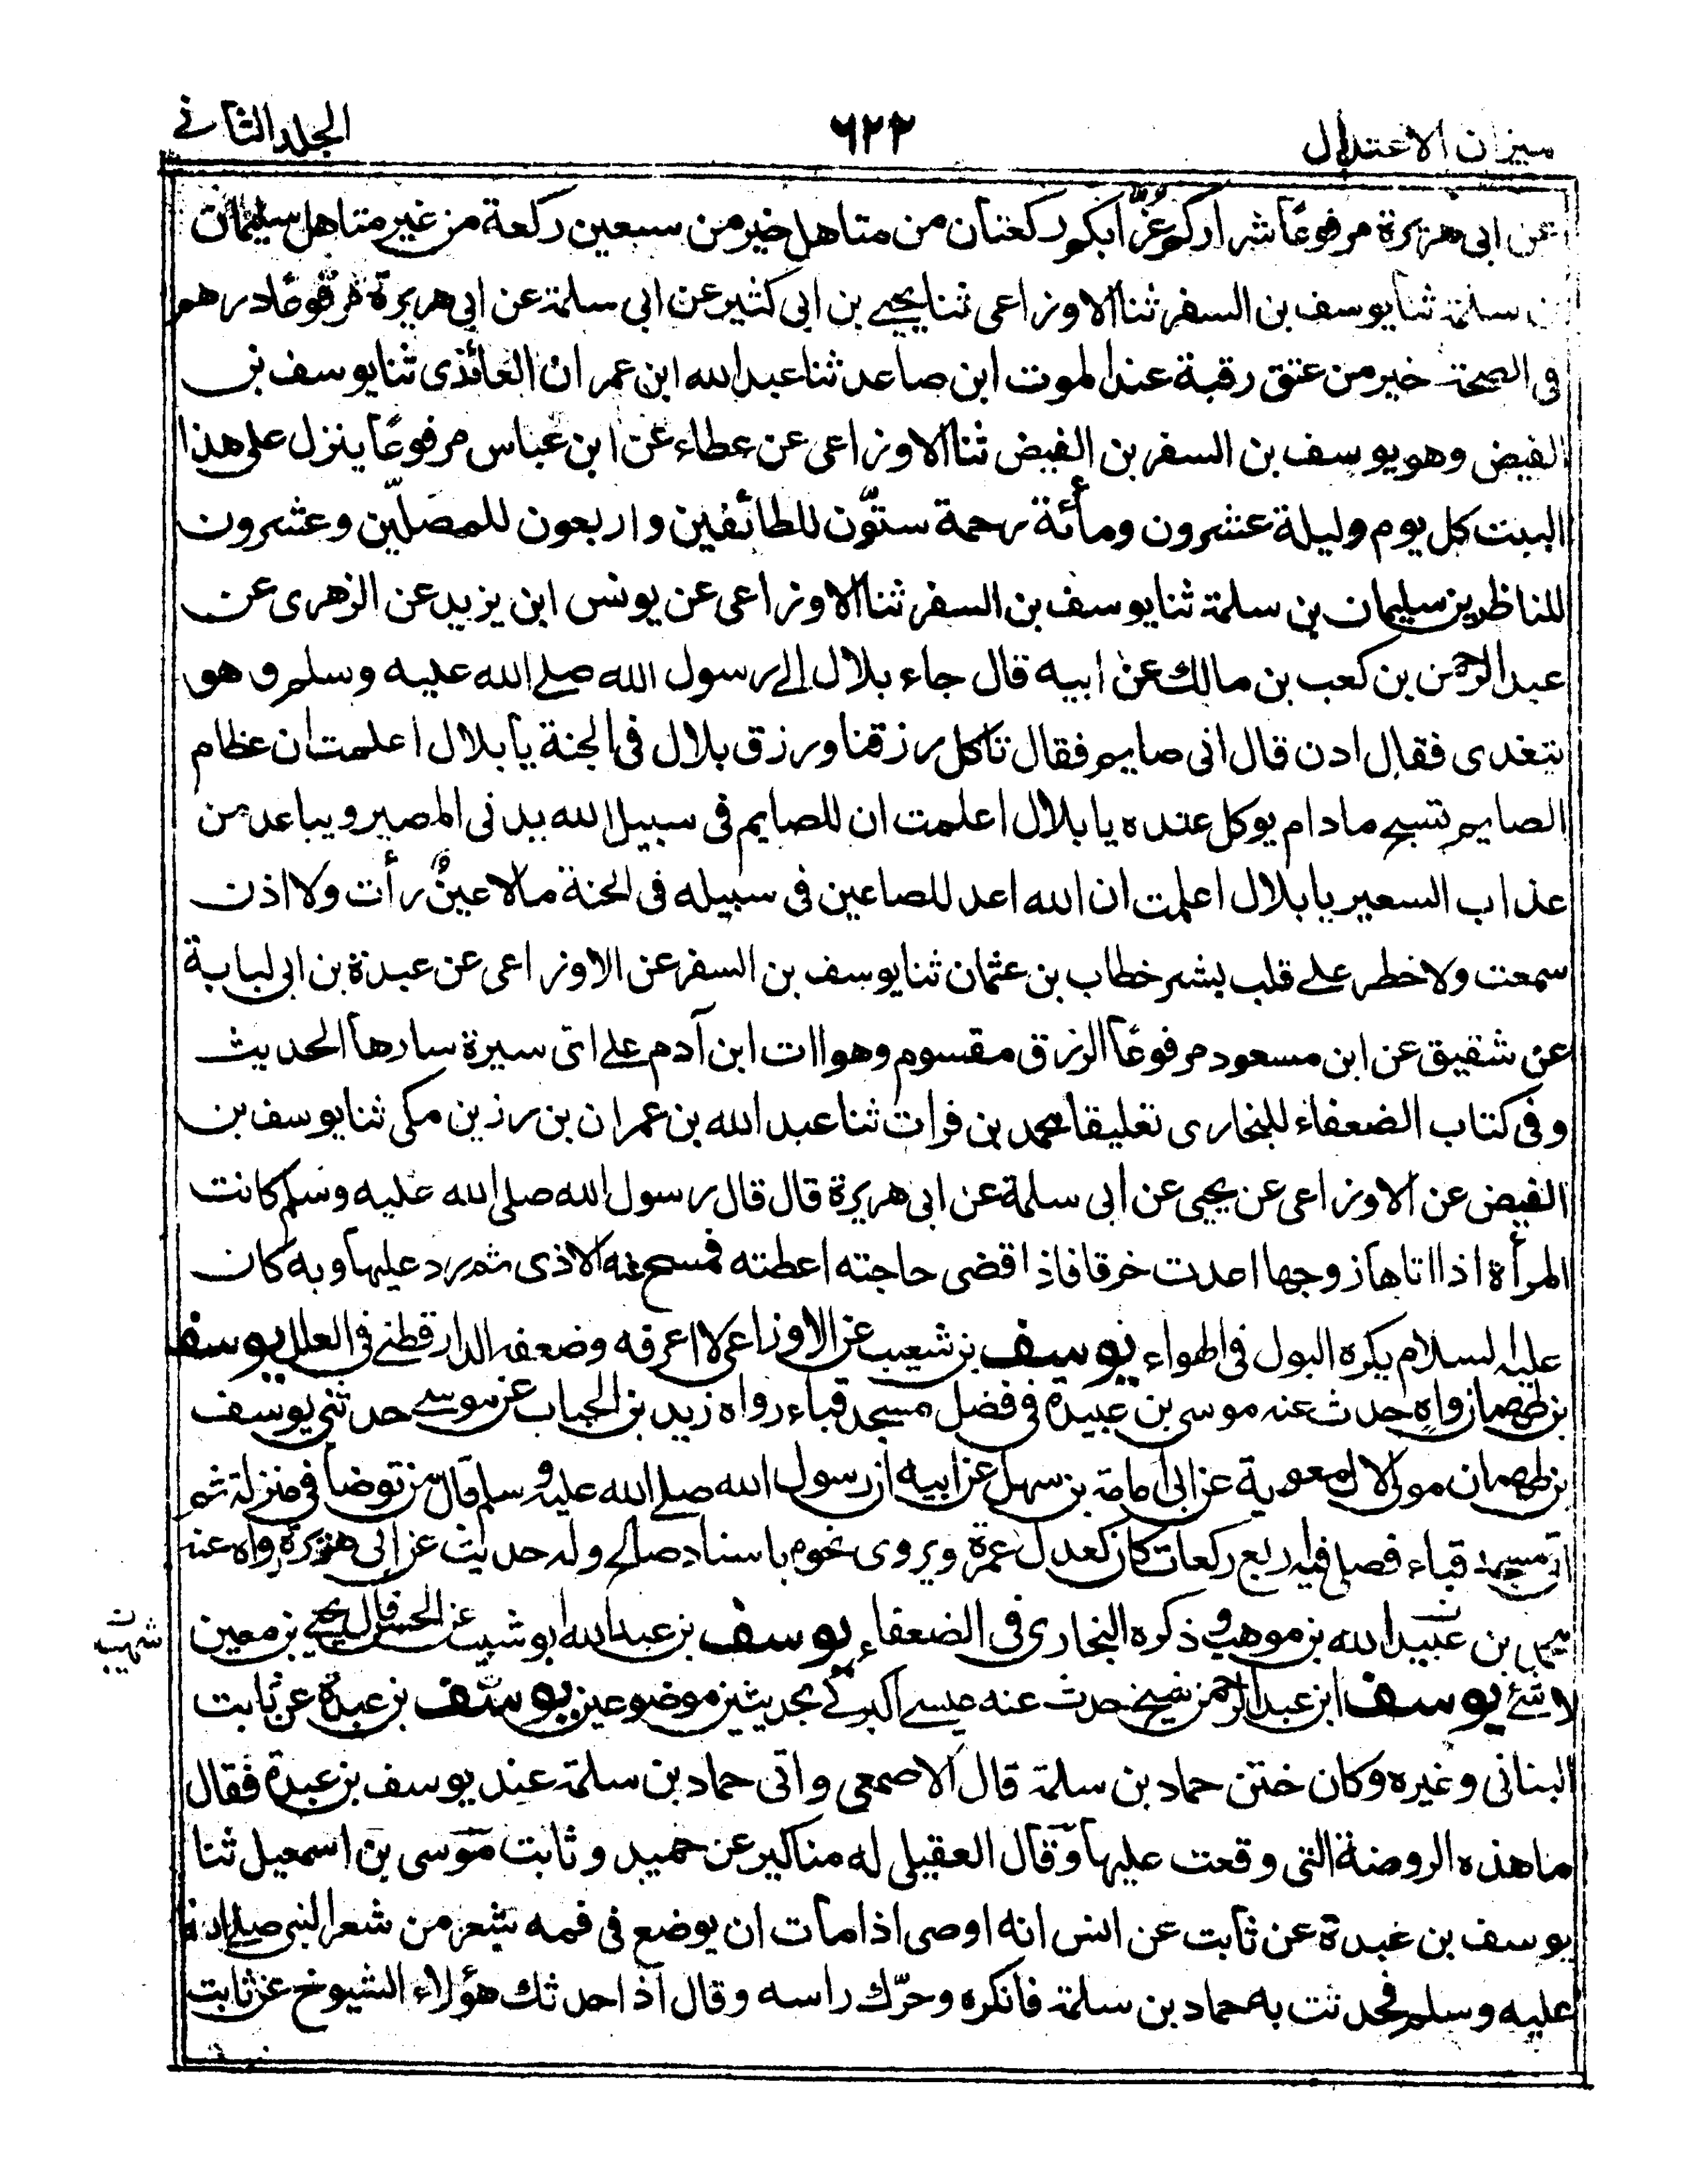 ميزان الاعتدال
٦٢٢
الجلد الثاني
عن ابى هريرة مرفوعًا شراركم عُزَّابكم ركعتان من متاهل خير من سبعين ركعة من غير متاهل سليمان
بن سلمة ثنا يوسف بن السفر ثنا الاوزاعى ثنا يحيى بن ابى كثير عن ابى سلمة عن ابى هريرة مرفوعًا درهم
فى الصحة خير من عتق رقبة عند الموت ابن صاعد ثنا عبد الله ابن عمران العائذى ثنا يوسف بن
الفيض وهو يوسف بن السفر بن الفيض ثنا الاوزاعى عن عطاء عن ابن عباس مرفوعًا ينزل على هذا
البيت كل يوم وليلة عشرون ومأئة رحمة ستّون للطائفين واربعون للمصلّين وعشرون
للناظرين سليمان بن سلمة ثنا يوسف بن السفر ثنا الاوزاعى عن يونس ابن يزيد عن الزهرى عن
عبد الرحمن بن كعب بن مالك عن ابيه قال جاء بلال الى رسول الله صلى الله عليه وسلم وهو
يتغدى فقال ادن قال انى صايم فقال تاكل رزقنا ورزق بلال فى الجنة يا بلال اعلمت ان عظام
الصايم تسبح مادام يوكل عنده يا بلال اعلمت ان للصايم فى سبيل الله يدنى المصير ويباعد من
عذاب السعير يا بلال اعلمت ان الله اعد للصاعين فى سبيله فى الجنة مالا عينٌ رأت ولا اذن
سمعت ولا خطر على قلب بشر خطاب بن عثمان ثنا يوسف بن السفر عن الاوزاعى عن عبدة بن ابى لبابة
عن شقيق عن ابن مسعود مرفوعًا الرزق مقسوم وهو ات ابن آدم على اى سيرة سارها الحديث
وفى كتاب الضعفاء للبخارى تعليقا محمد بن فرات ثنا عبد الله بن عمران بن رزين مكى ثنا يوسف بن
الفيض عن الاوزاعى عن يحيى عن ابى سلمة عن ابى هريرة قال قال رسول الله صلى الله عليه وسلم كانت
المرأة اذا اتاها زوجها اعدت خرقا فاذا قضى حاجته اعطته فمسح عنه الاذى ثم رد عليها وبه كان
عليه السلام يكره البول فى الهواء يوسف بن شعيب عن الاوزاعى لا اعرفه وضعفه الدارقطنى فى العلل يوسف
بن طهمان واه حدث عنه موسى بن عبيدة فى فضل مسجد قباء رواه زيد بن الحباب عن موسى حدثنى يوسف
بن طهمان مولى لال معوية عن ابى امامة بن سهل عن ابيه ان رسول الله صلى الله عليه وسلم قال من توضا فى منزله ثم
اتى مسجد قباء فصلى فيه اربع ركعات كان كعدل عمرة ويروى نحوه باسناد صالح وله حديث عن ابى هريرة رواه عنه
بن عبيد الله بن موهب وذكره البخارى فى الضعفاء يوسف بن عبد الله ابو شبيب عن الحسن قال يحيى بن معين
شهيب
لا شئ يوسف ابن عبد الرحمن شيخ حدث عنه عيسى البركى بحديثين موضوعين يوسف بن عبدة عن ثابت
البنانى وغيره وكان ختن حماد بن سلمة قال الاصمعى واتى حماد بن سلمة عند يوسف بن عبدة فقال
ما هذه الروضة التى وقعت عليها وقال العقيلى له مناكير عن حميد وثابت موسى بن اسمعيل ثنا
يوسف بن عبدة عن ثابت عن انس انه اوصى اذا مات ان يوضع فى فمه شعر من شعر النبى صلى الله
عليه وسلم فحدثت به حماد بن سلمة فانكره وحرّك راسه وقال اذا حدثك هؤلاء الشيوخ عن ثابت